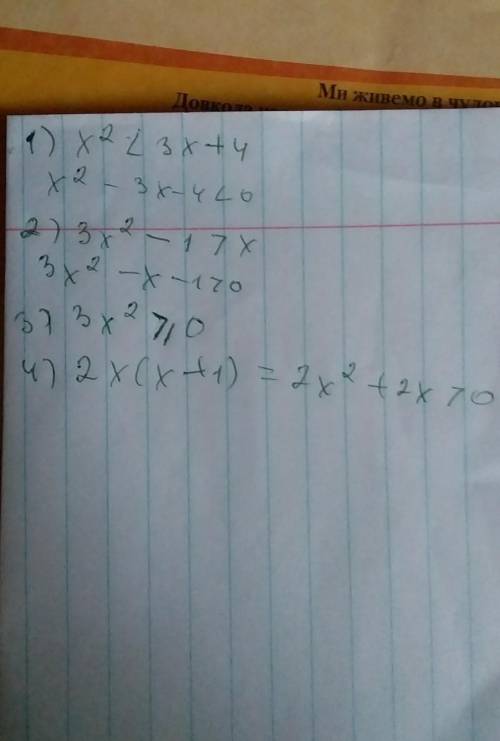 Ми живемо в
Довкола
1) x² < 3x+4
x² - 3x-4<0
2) 3x² - 1 > x
3x² - x - 1>0
3) 3x² ⩾ 0
4) 2x(x+1) = 2x² + 2x > 0